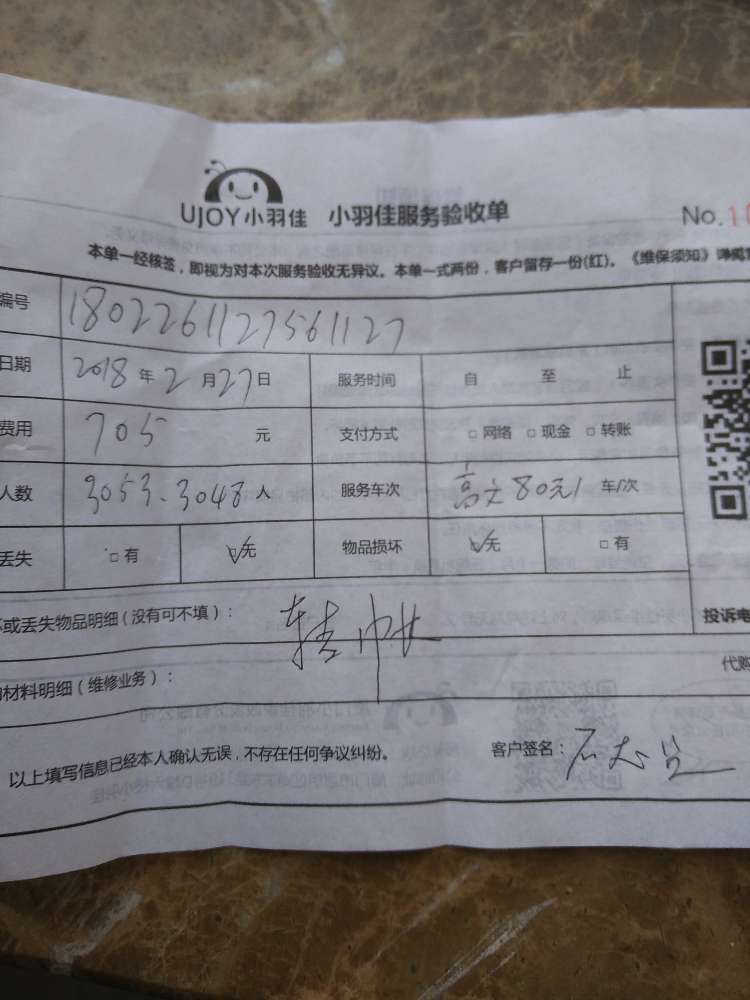 UJOY小羽佳 小羽佳服务验收单 No.1
本单一经核签，即视为对本次服务验收无异议。本单一式两份，客户留存一份(红)。《维保须知》
编号 1802261127561127
日期 2018 年 2 月 27 日 服务时间 自 至 止
费用 705 元 支付方式 □ 网络 □ 现金 □ 转账
人数 3053.3048 人 服务车次 80元1 车/次
丢失 □ 有 □ 无 物品损坏 □ 无 □ 有
坏或丢失物品明细（没有可不填）：
投诉电
材料明细（维修业务）：
代购
以上填写信息已经本人确认无误，不存在任何争议纠纷。 客户签名：石